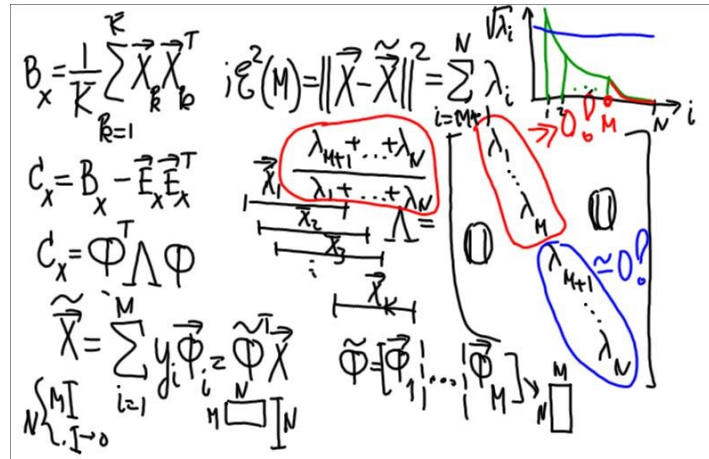 B_x = 1/K Σ_{k=1}^{K} X⃗_k X⃗_k^T
ε²(M) = ||X⃗ - X̃⃗||² = Σ_{i=M+1}^{N} λ_i
√λ_i
1 2 ... M N i
C_x = B_x - E⃗_x E⃗_x^T
λ_{M+1} + ... + λ_N
λ_1 + ... + λ_N
→ 0!
X⃗_1
X⃗_2
X⃗_3
X⃗_K
Λ =
λ_1
...
λ_M
0
0
λ_{M+1}
...
λ_N
≃ 0!
C_x = Φ^T Λ Φ
X̃⃗ = Σ_{i=1}^{M} y_i Φ⃗_i = Φ̃^T X⃗
Φ̃ = [Φ⃗_1 ¦ ... ¦ Φ⃗_M]
N { M
→ 0
M N
N
M
N